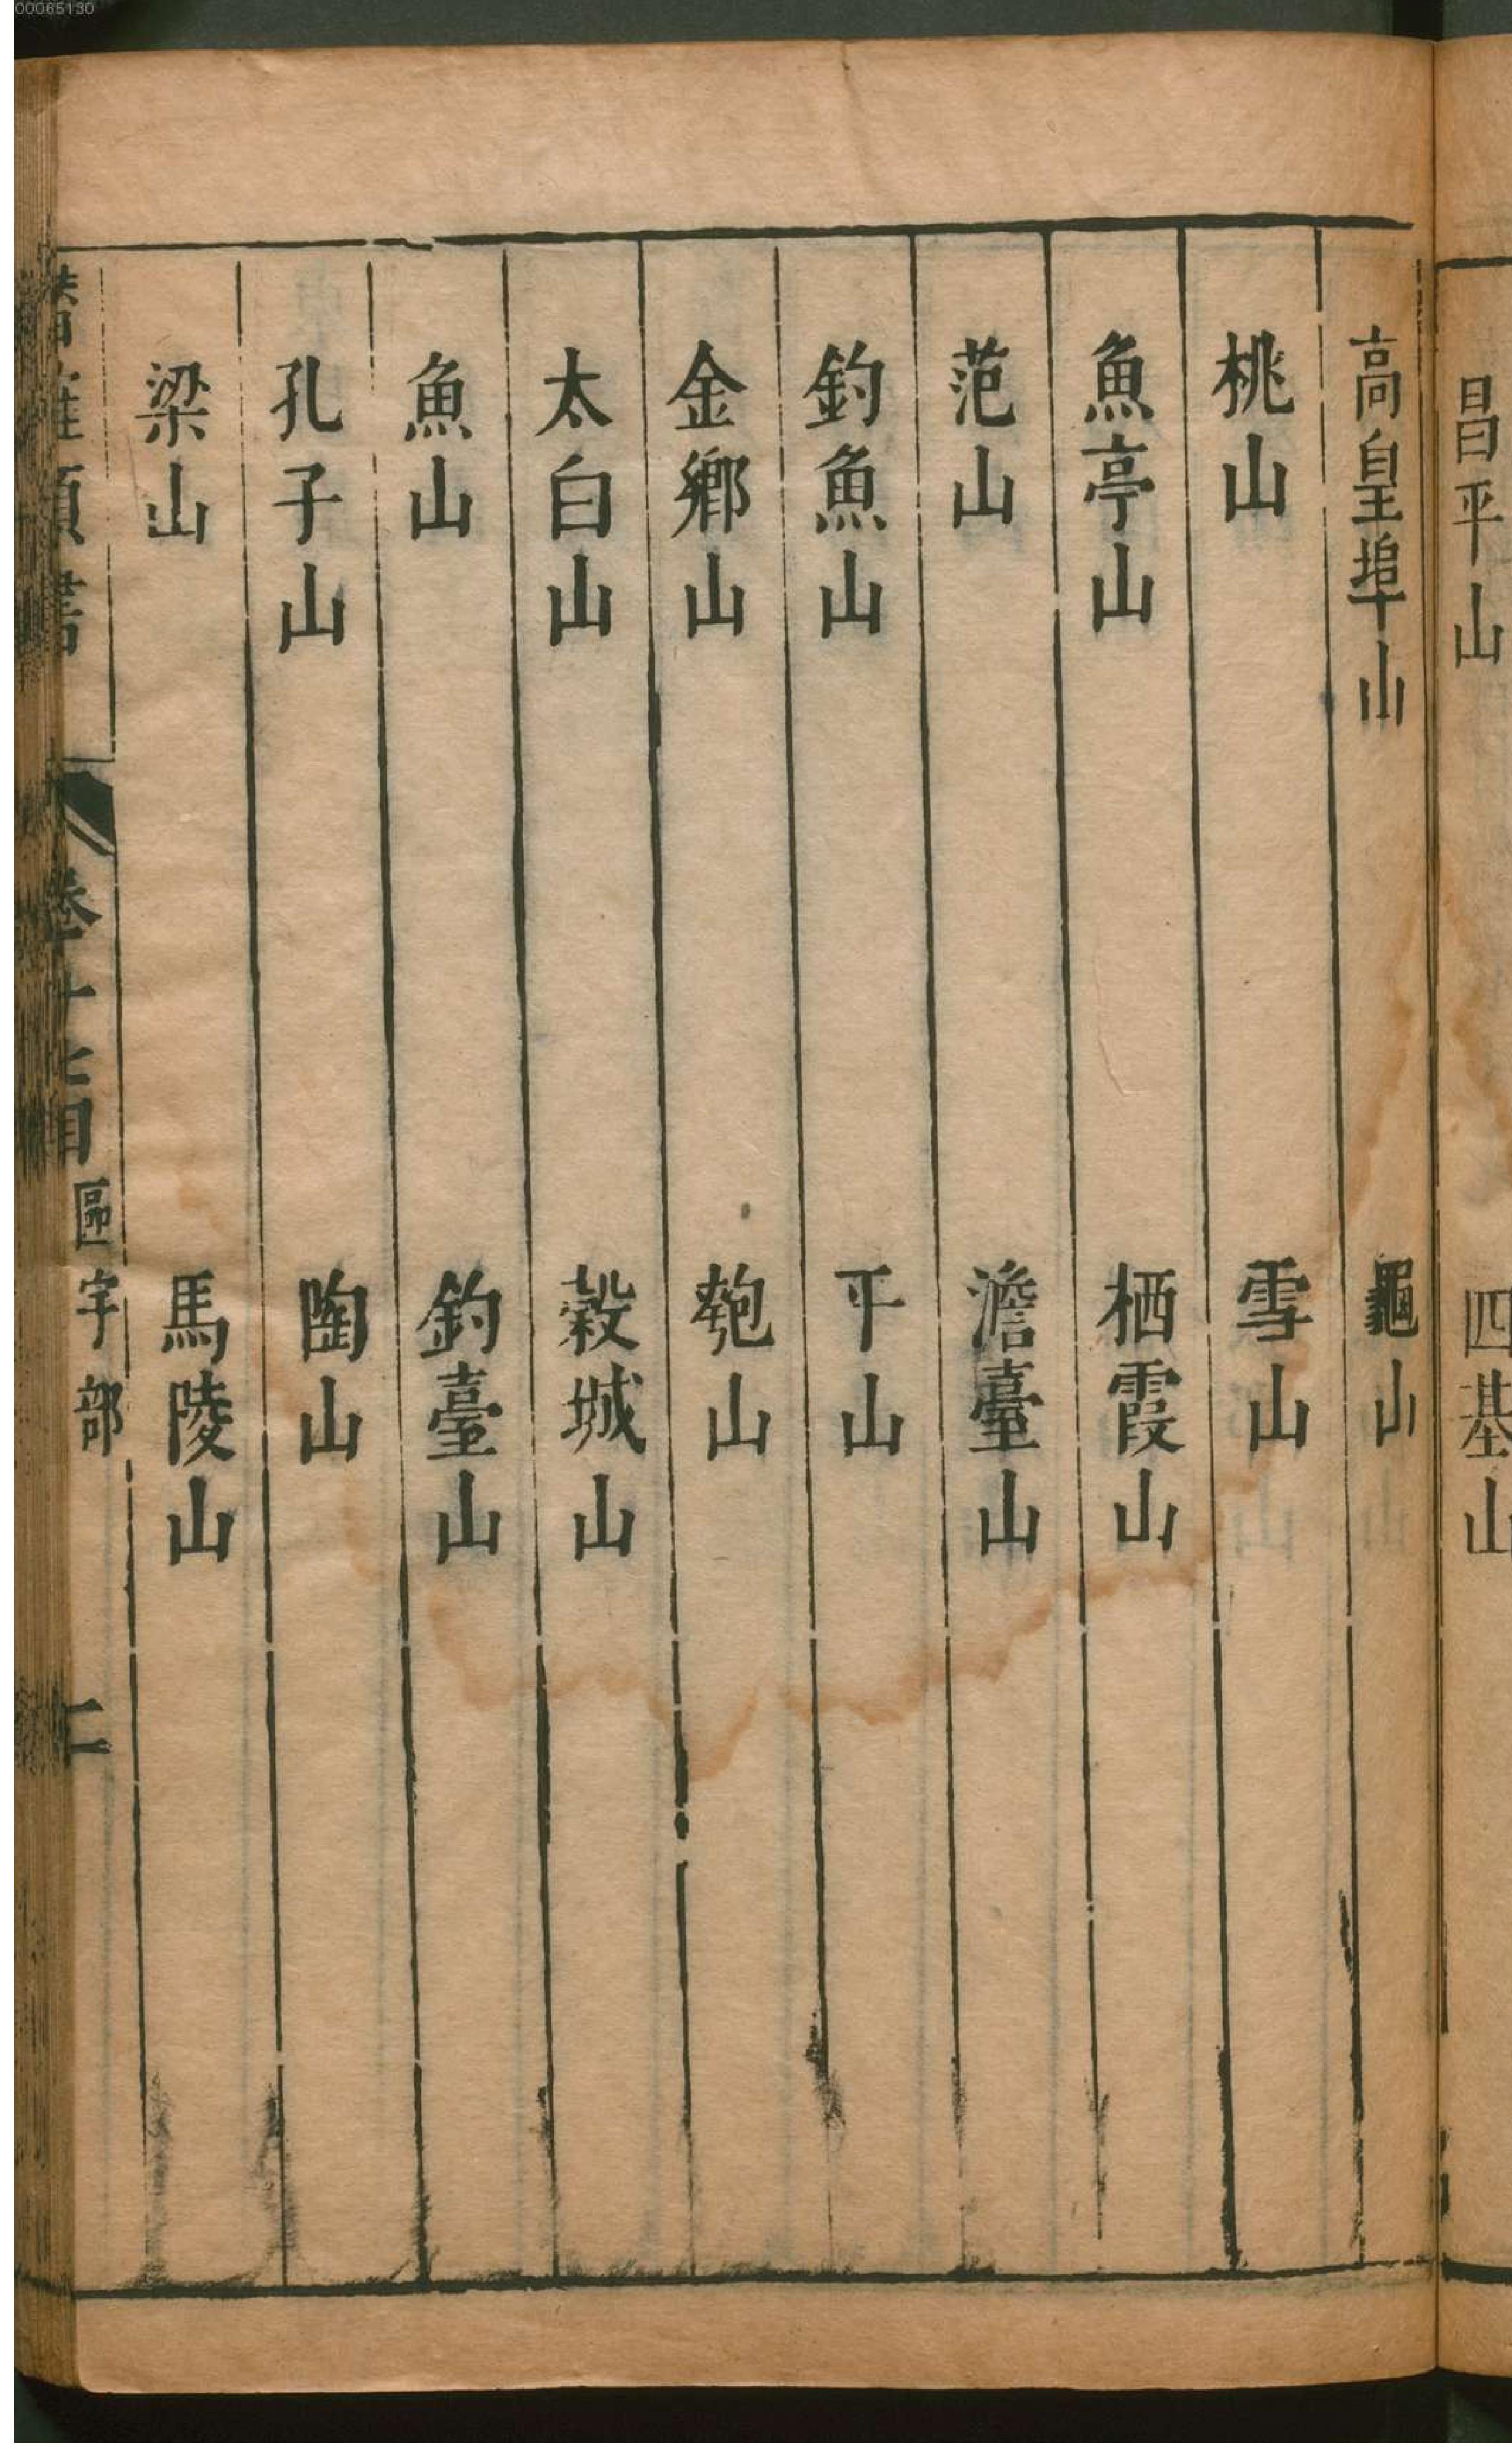 00065130
昌平山 四基山
高皇埠山 龜山
桃山 雪山
魚亭山 栖霞山
范山 澹臺山
釣魚山 平山
金鄉山 匏山
太白山 榖城山
魚山 釣臺山
孔子山 陶山
梁山 馬陵山
潛確類書 卷十七目 區宇部 二